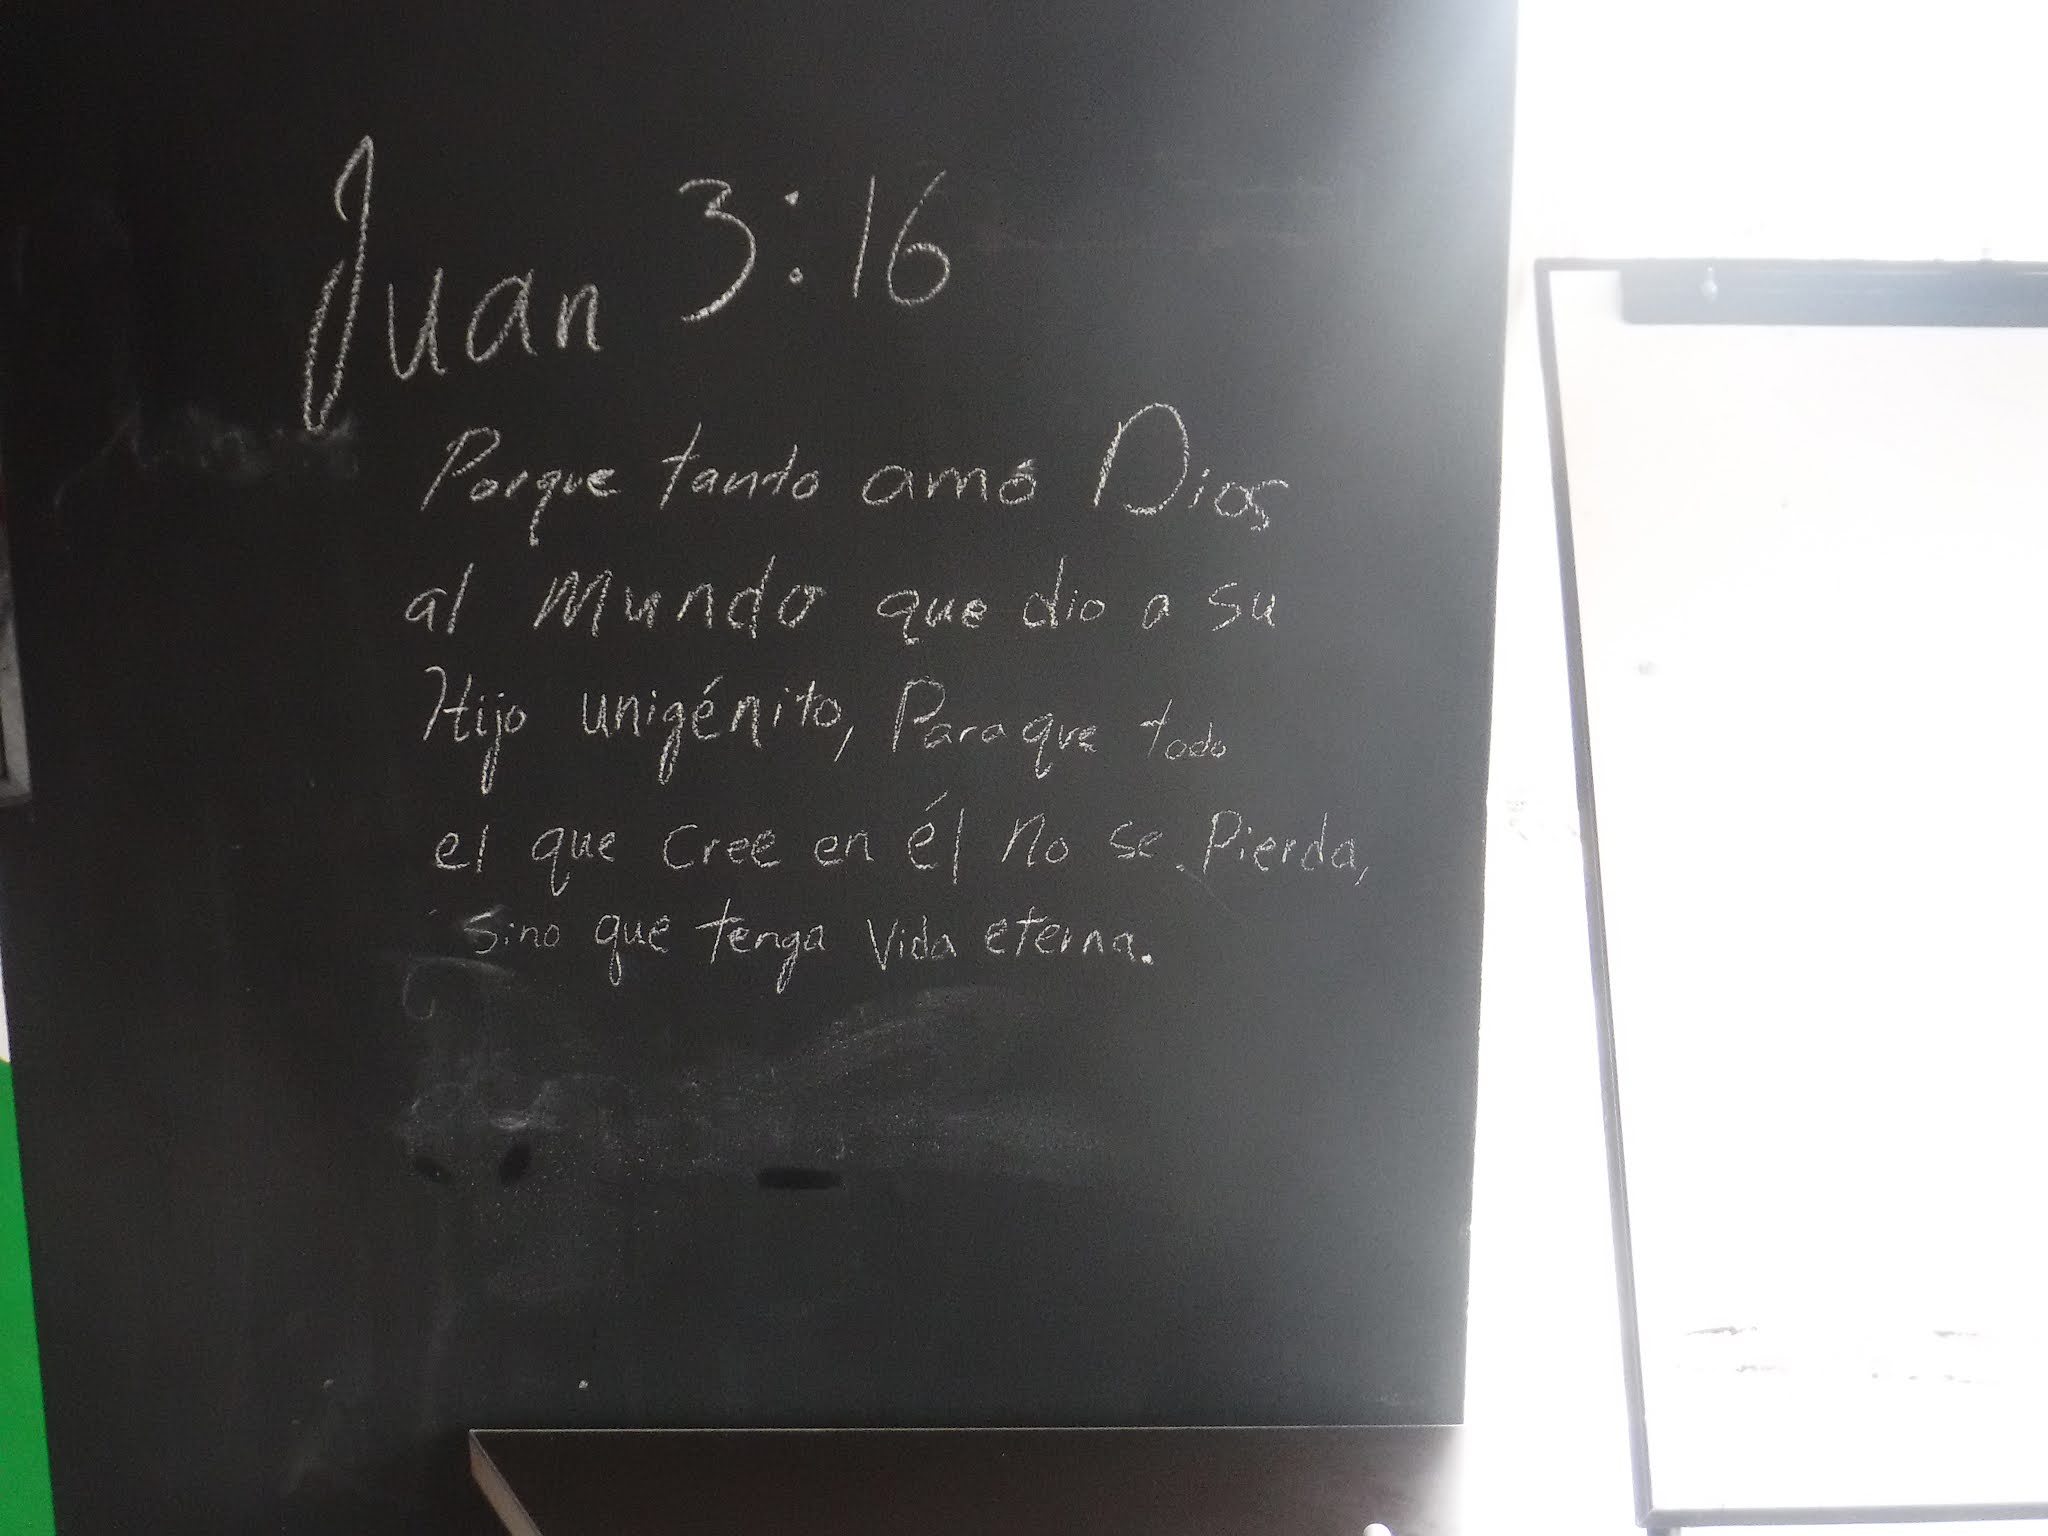 Juan 3:16
Porque tanto amó Dios
al Mundo que dio a su
Hijo unigénito, Para que todo
el que cree en él no se Pierda,
sino que tenga vida eterna.